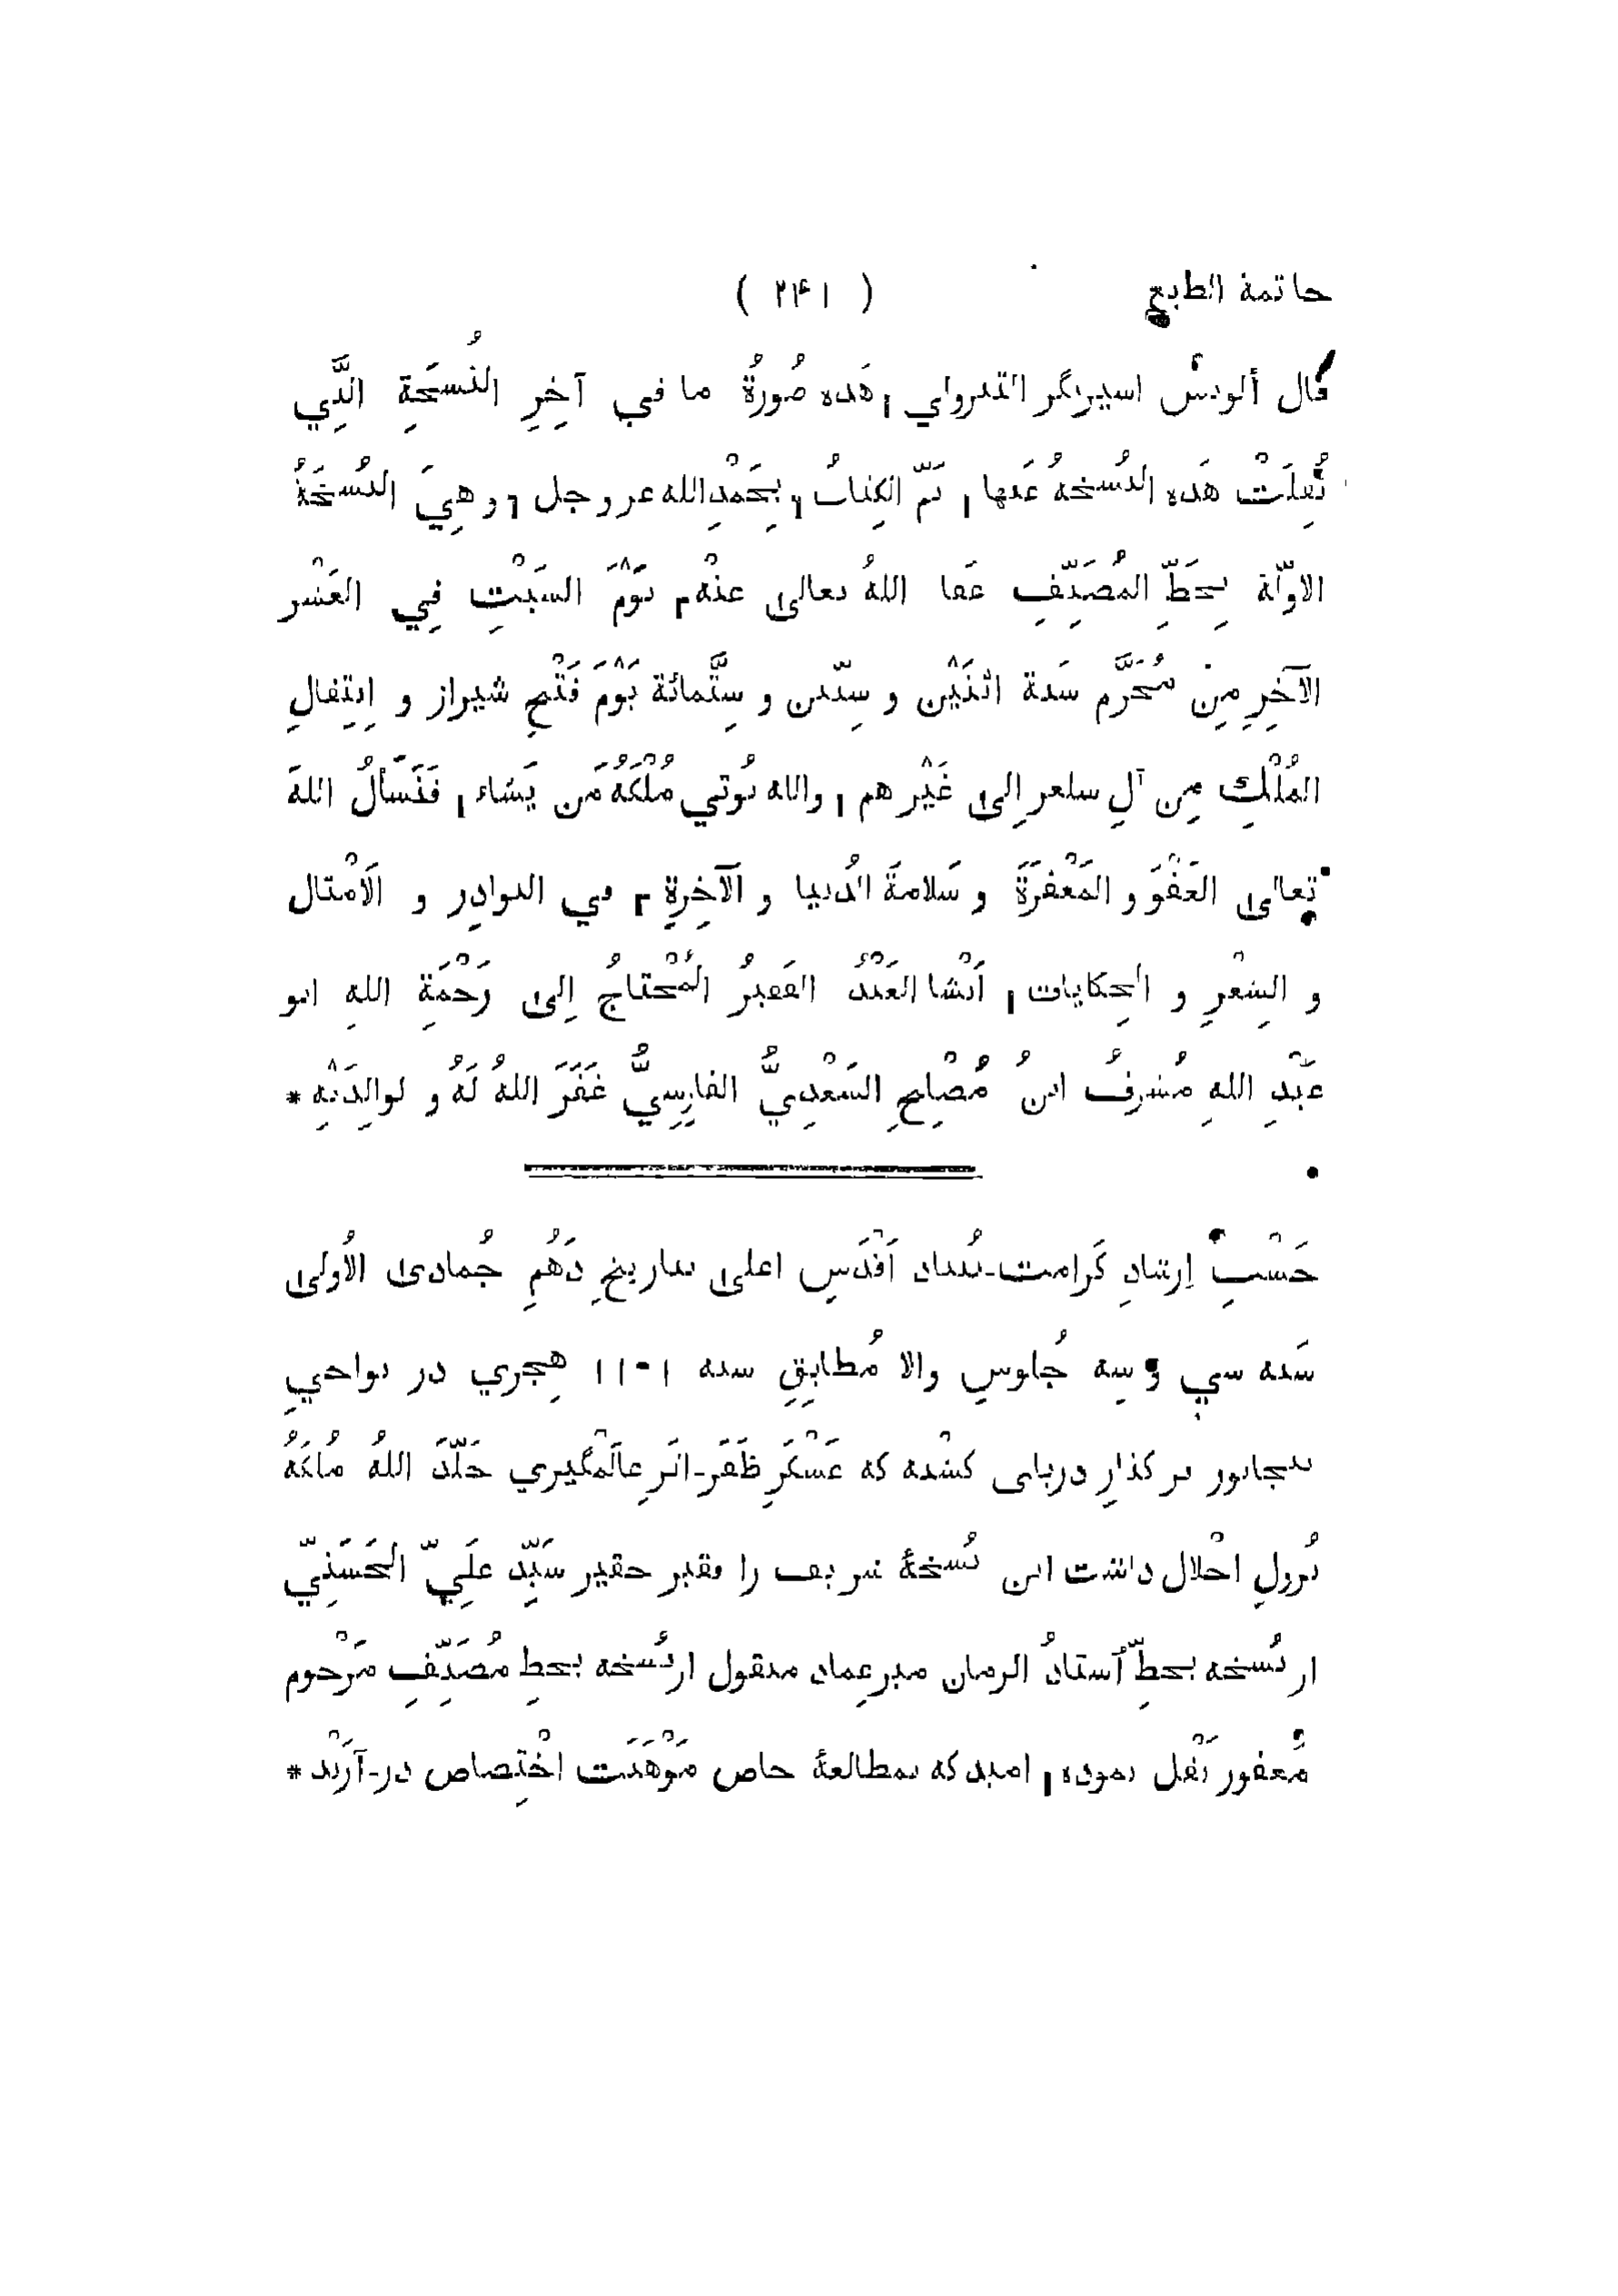 خاتمة الطبع ( ٢٤١ )
قال ألويسْ اسپرنگر التدرولي , هَذه صُورةُ ما في آخِرِ النُسخَةِ الَّتِي
نُقِلَتْ هَذه النُسخةُ عَنها , تَمّ الكِتابُ , بِحَمْدِ الله عز و جل , و هِيَ النُسخَةُ
الاوّلة بِخَطِّ المُصَنِّفِ عَفا اللهُ تعالى عنْه , يَوْمَ السَبْتِ فِي العَشْر
الآخِرِ مِنْ مُحَرَّم سَنة اثْنَيْن و سِتّين و سِتَّمائة يَوْمَ فَتْحِ شيراز و اِنتِقالِ
المُلْكِ مِن آلِ سلغر إِلى غَيْرهم , والله يُوتي مُلْكَهُ مَن يَشاء , فَنَسْأَلُ اللهَ
تعالى العَفْوَ و المَغْفرَةَ و سَلامةَ الدُنيا و الآخِرةِ , في النوادِر و الاَمْثال
و الشِعْرِ و الحِكايات , أَنْشا العَبْدُ الفَقيرُ المُحْتاجُ إِلى رَحْمَةِ اللهِ ابو
عَبْدِ اللهِ مُشرفُ ابنُ مُصْلِحِ السَعْدِيُّ الفارِسِيُّ غَفَرَ اللهُ لَهُ و لوالِدَيْهِ *
حَسْبِ اِرشادِ كَرامت-بُنياد اَقْدَسِ اعلى بتاريخِ دَهُمِ جُمادى الاُولى
سَنه سي و سِه جُلوسِ والا مُطابِقِ سنه ١١٠١ هِجري در نواحيِ
بيجاپور بر كذارِ درياى كشْنه كه عَسْكَرِ ظَفَر-اثَرِ عالَمْگيري خَلّدَ اللهُ مُلكَهُ
نُزولِ اجْلال داشت اين نُسخهٔ شريف را فقير حقير سَيِّد علَيّ الحَسَنِيّ
از نُسخه بخطِّ اُستادُ الزمان مير عِماد منقول از نُسخه بخطِ مُصَنِّفِ مَرْحوم
مُغفور نَقْل نموده , اميد كه بمطالعهٔ خاص مَوْهَبَت اخْتِصاص در-آرَنْد *